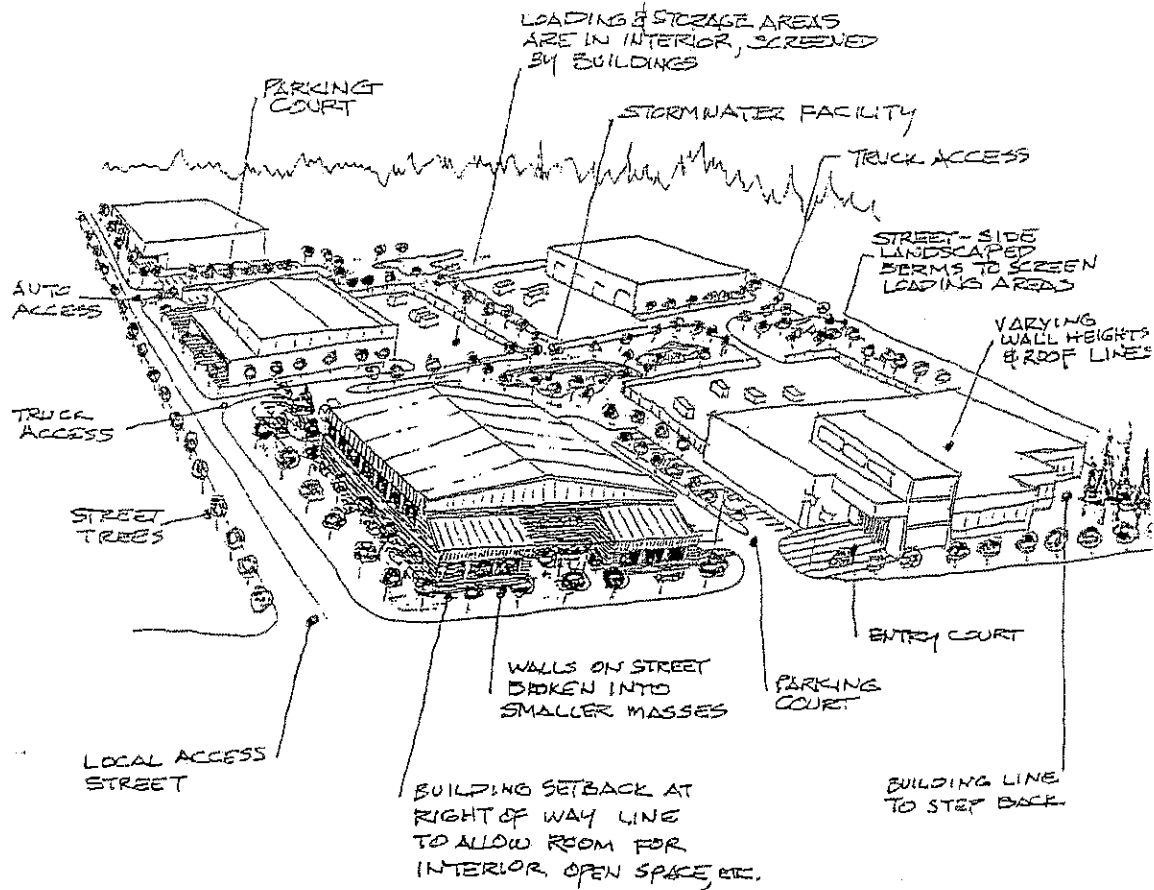 LOADING & STORAGE AREAS
ARE IN INTERIOR, SCREENED
BY BUILDINGS
PARKING
COURT
STORMWATER FACILITY
TRUCK ACCESS
STREET-SIDE
LANDSCAPED
BERMS TO SCREEN
LOADING AREAS
AUTO
ACCESS
VARYING
WALL HEIGHTS
& ROOF LINES
TRUCK
ACCESS
STREET
TREES
ENTRY COURT
WALLS ON STREET
BROKEN INTO
SMALLER MASSES
PARKING
COURT
LOCAL ACCESS
STREET
BUILDING SETBACK AT
RIGHT OF WAY LINE
TO ALLOW ROOM FOR
INTERIOR OPEN SPACE, ETC.
BUILDING LINE
TO STEP BACK.